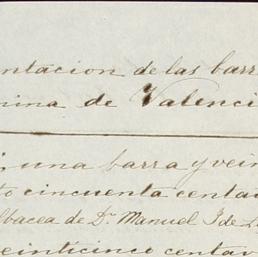 ntacion de las barr
nina de Valenci
una barra y vein
to cincuenta centa
lbacea de Dn Manuel J. de L
veinticinco centav